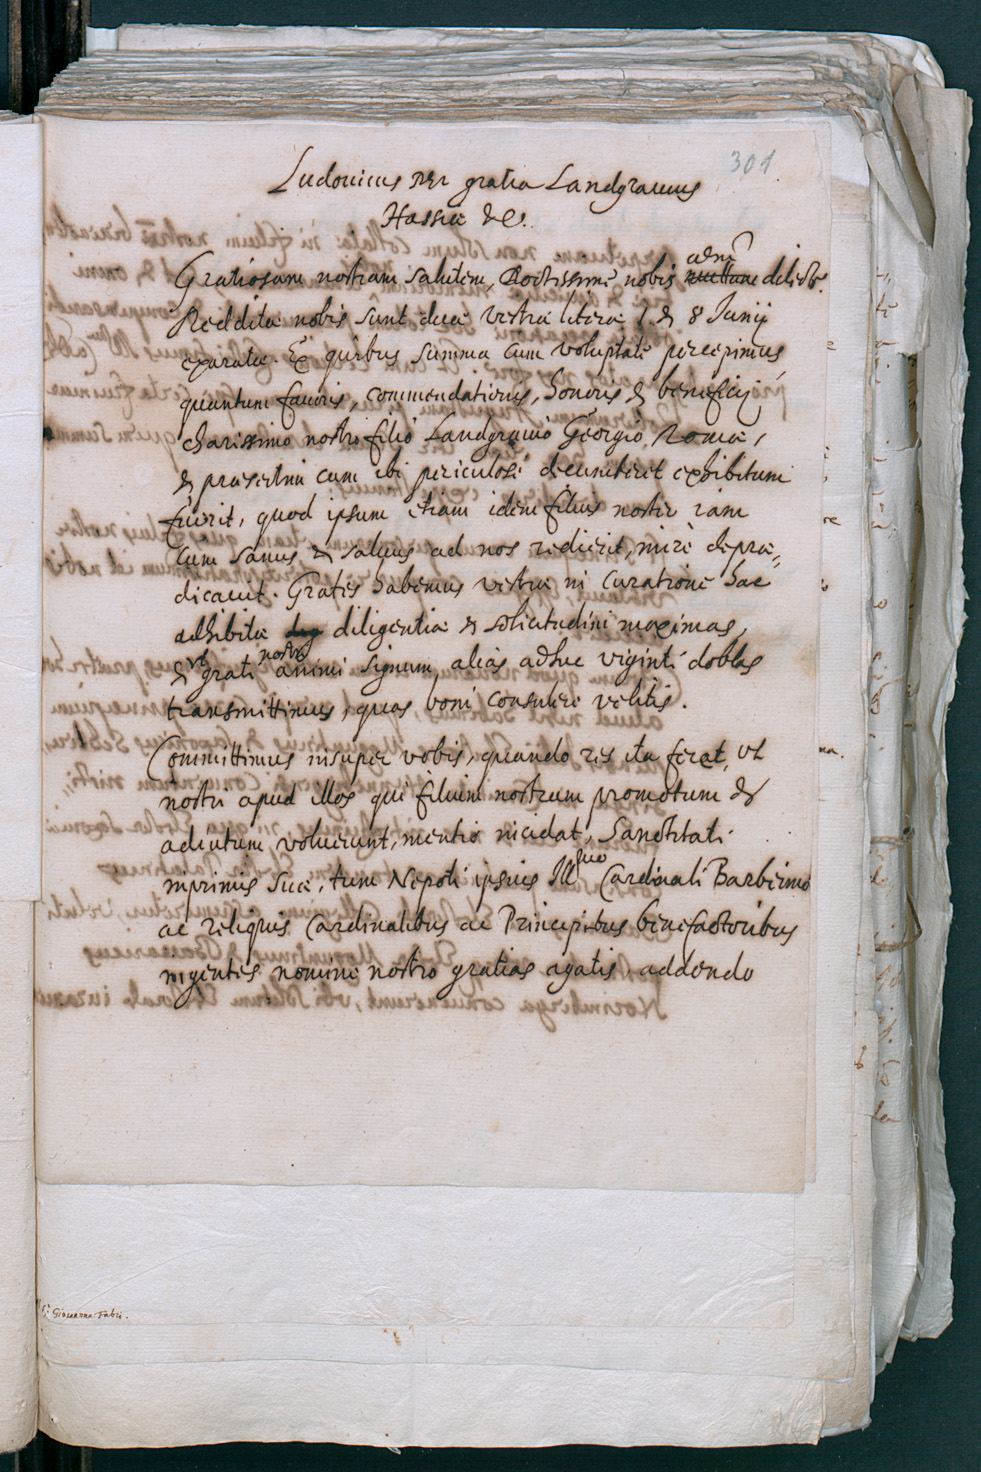 301
Ludouicus Dei gratia Landgrauius
Hassiæ &c.
Gratiosam nostram salutem, Doctissime nobis admodum dilecte.
Redditæ nobis sunt duæ vestræ literæ 7 & 8 Junij
exaratæ. Ex quibus summa cum voluptate percepimus,
quantum fauoris, commendationis, honoris & beneficij
charissimo nostro filio Landgrauio Georgio, Romæ,
& præsertim cum ibi periculosè decumberet exhibitum
fuerit, quod ipsum etiam idem filius noster iam
cum sanus & saluus ad nos redierit, mirè depræ-
dicauit. Grates habemus vestræ in curatione hac
adhibitæ diligentiæ & solicitudini maximas,
& vt grati nostri animi signum, alias adhuc viginti doblas
transmittimus, quas boni consulere velitis.
Committimus insuper vobis, quando res ita ferat, vt
nostri apud illos qui filium nostrum promotum &
adiutum voluerunt, mentio incidat, Sanctitati
inprimis suæ, tum Nepoti ipsius Ill^mo Cardinali Barberino
ac reliquis Cardinalibus ac Principibus benefactoribus
ingentes nomine nostro gratias agatis, addendo
Giouanna Fabri.